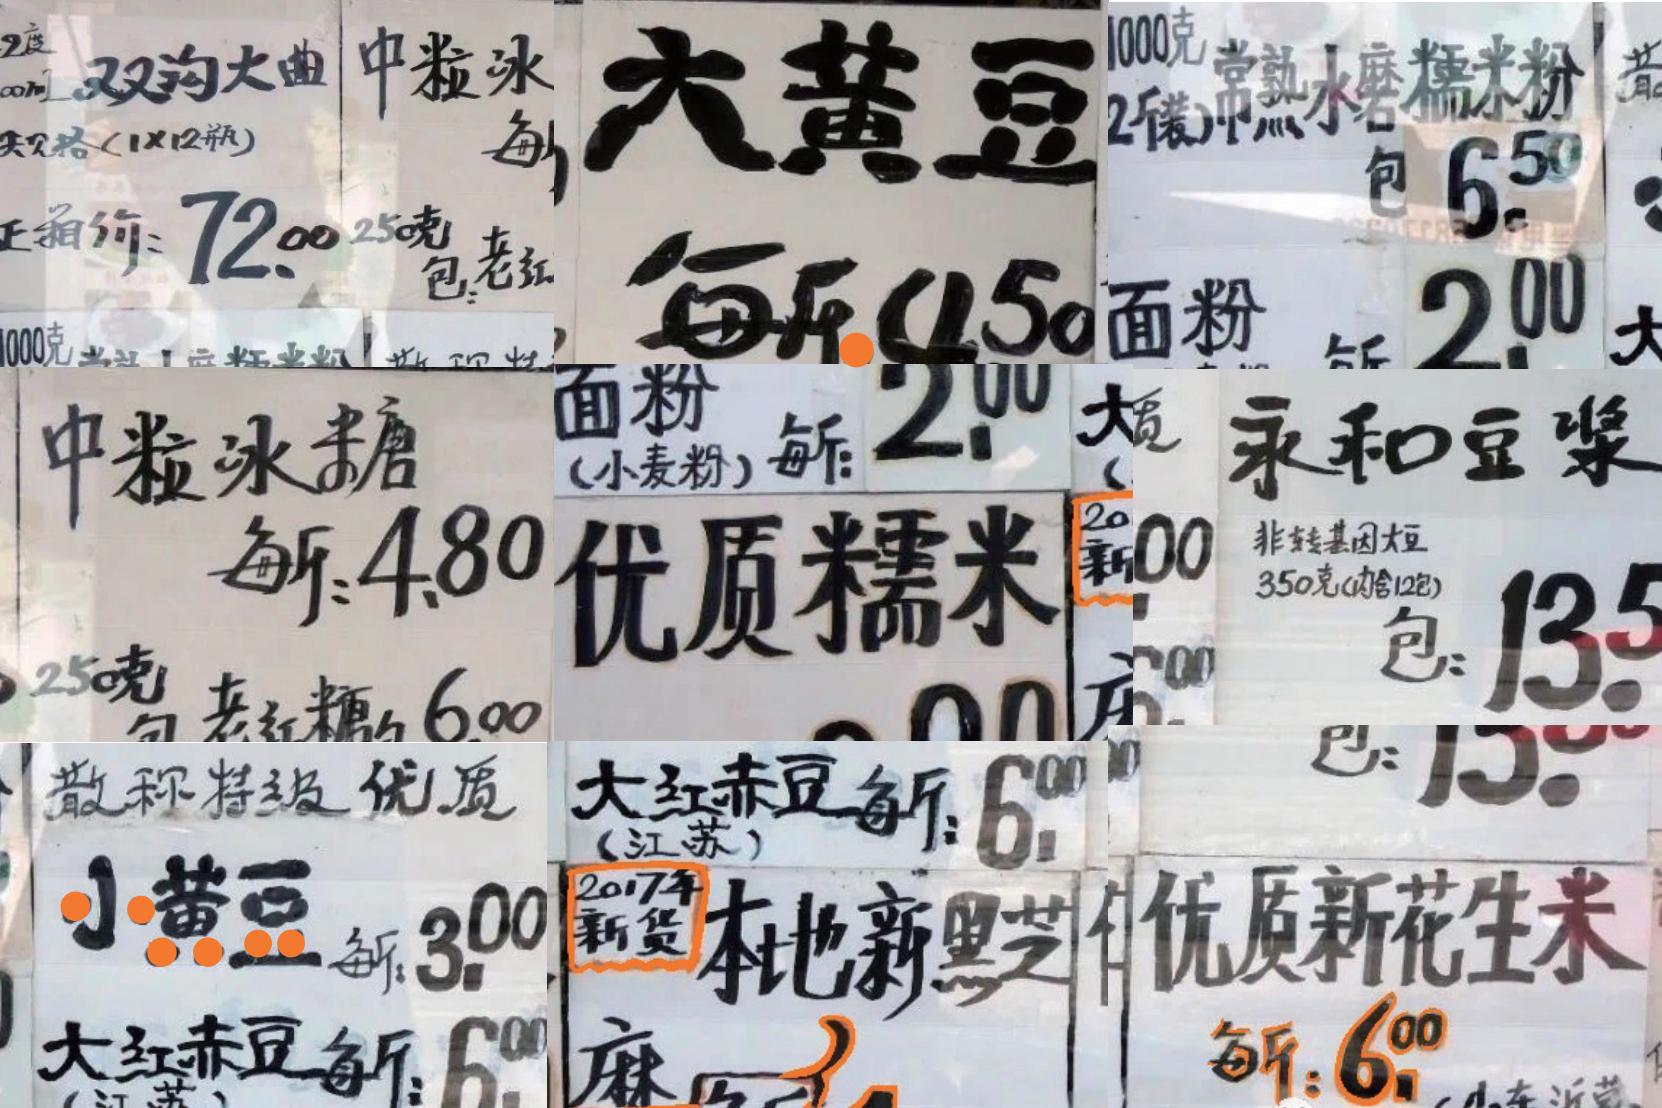 双沟大曲
(1X12瓶)
正箱价: 72.00
1000克
中粒冰
每
250克
包: 老红
大黄豆
每斤 4.50
1000克
(2斤装) 常熟水磨糯米粉
包 6.50
面粉
每斤 2.00
大
中粒冰糖
每斤: 4.80
250克
包 老红糖 6.00
面粉
(小麦粉) 每斤: 2.00
优质糯米
新
永和豆浆
非转基因大豆
350克(内含12包)
包: 13.5
散称特级优质
小黄豆
每斤: 3.00
大红赤豆 每斤: 6.00
(江苏)
大红赤豆 每斤: 6.00
(江苏)
2017年
新货
本地新黑芝
麻
包:
优质新花生米
每斤: 6.00